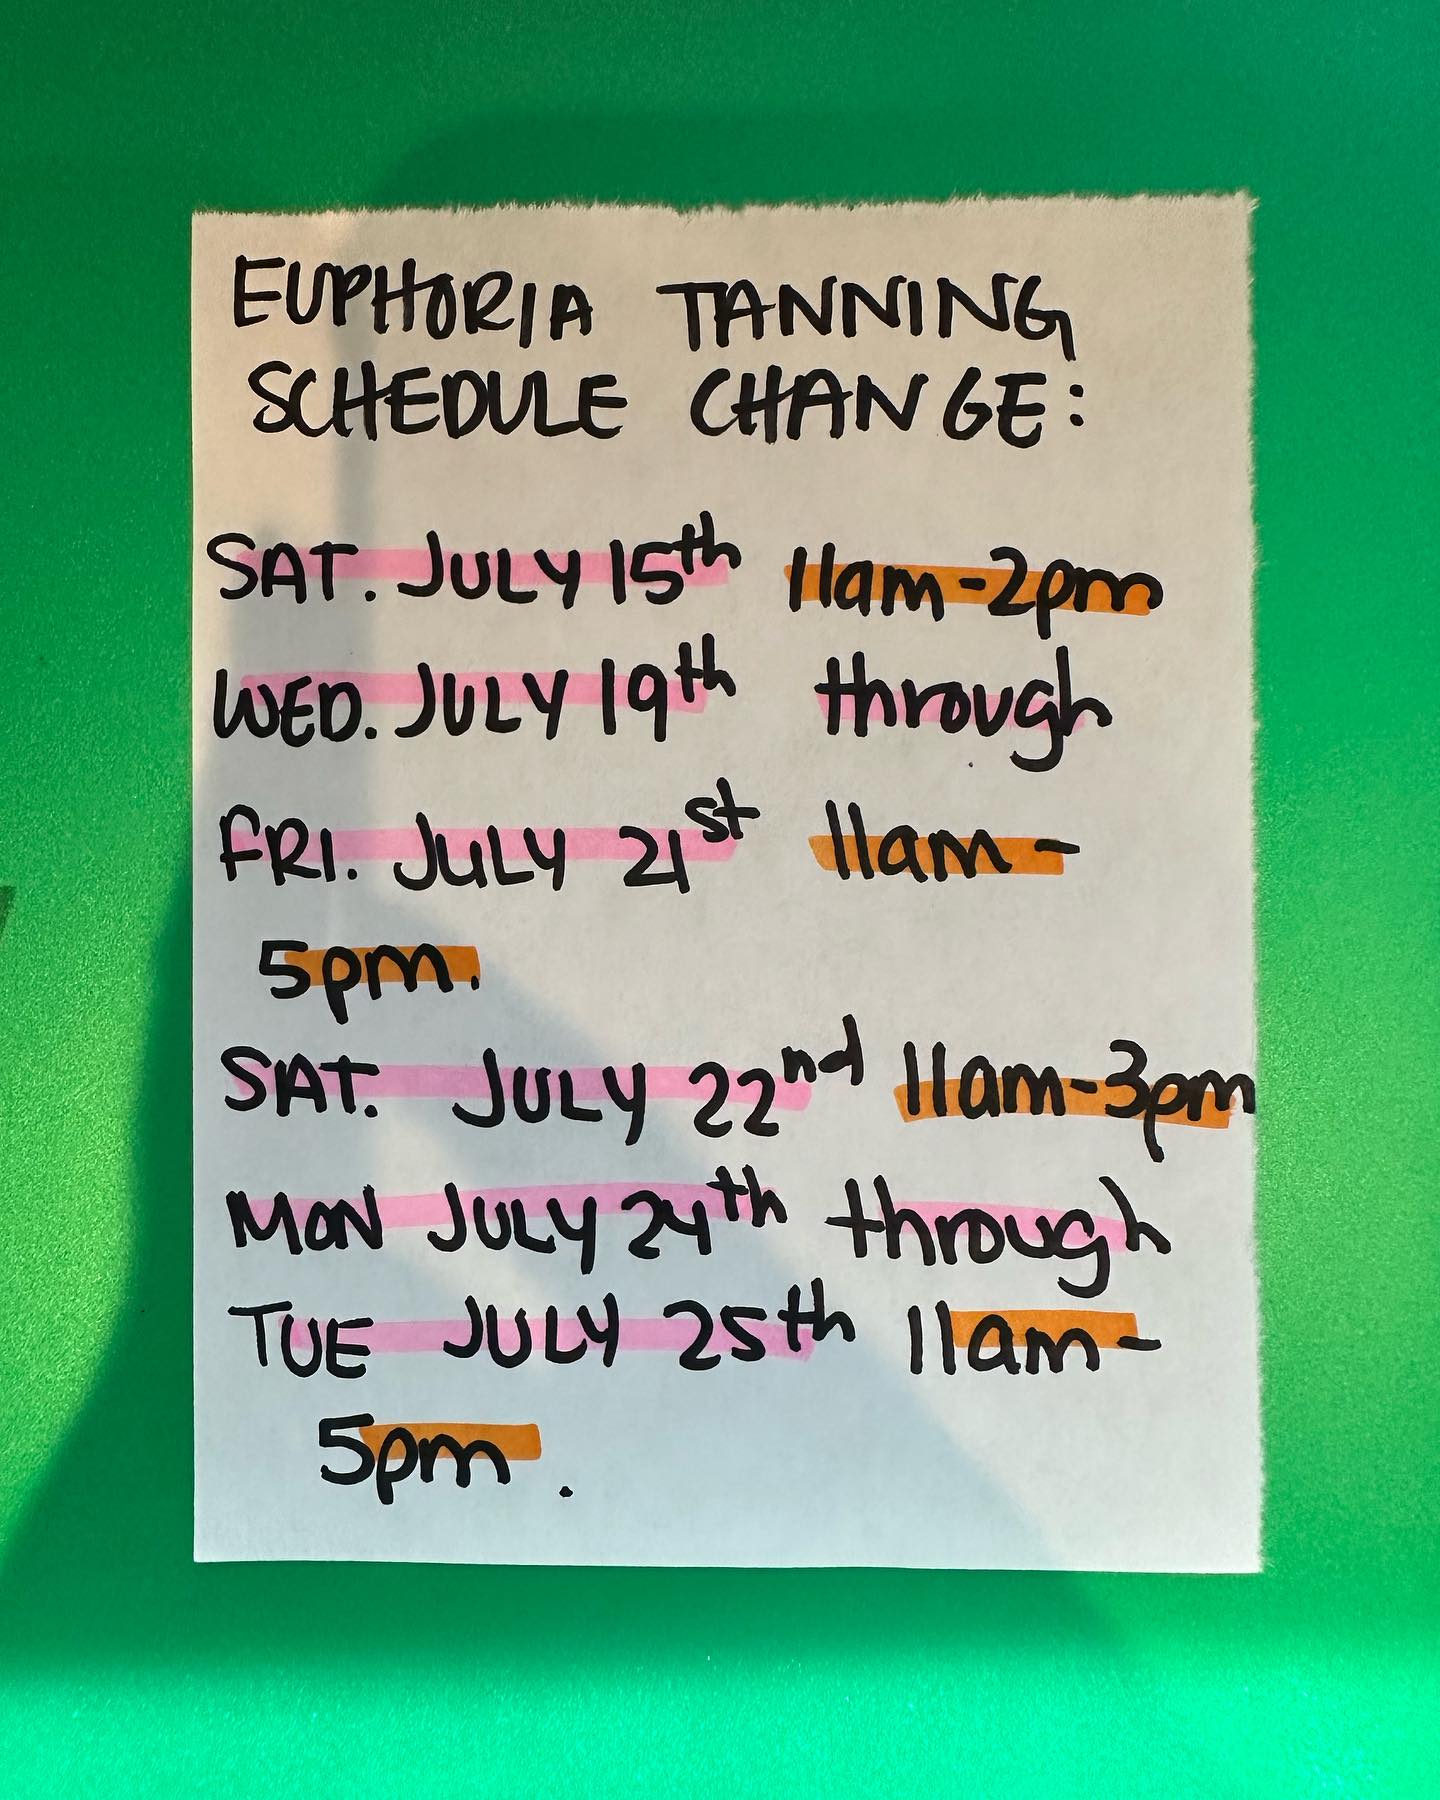 EUPHORIA TANNING
SCHEDULE CHANGE:
SAT. JULY 15th 11am-2pm
WED. JULY 19th through
FRI. JULY 21st 11am-
5pm.
SAT. JULY 22nd 11am-3pm
MON JULY 24th through
TUE JULY 25th 11am-
5pm.